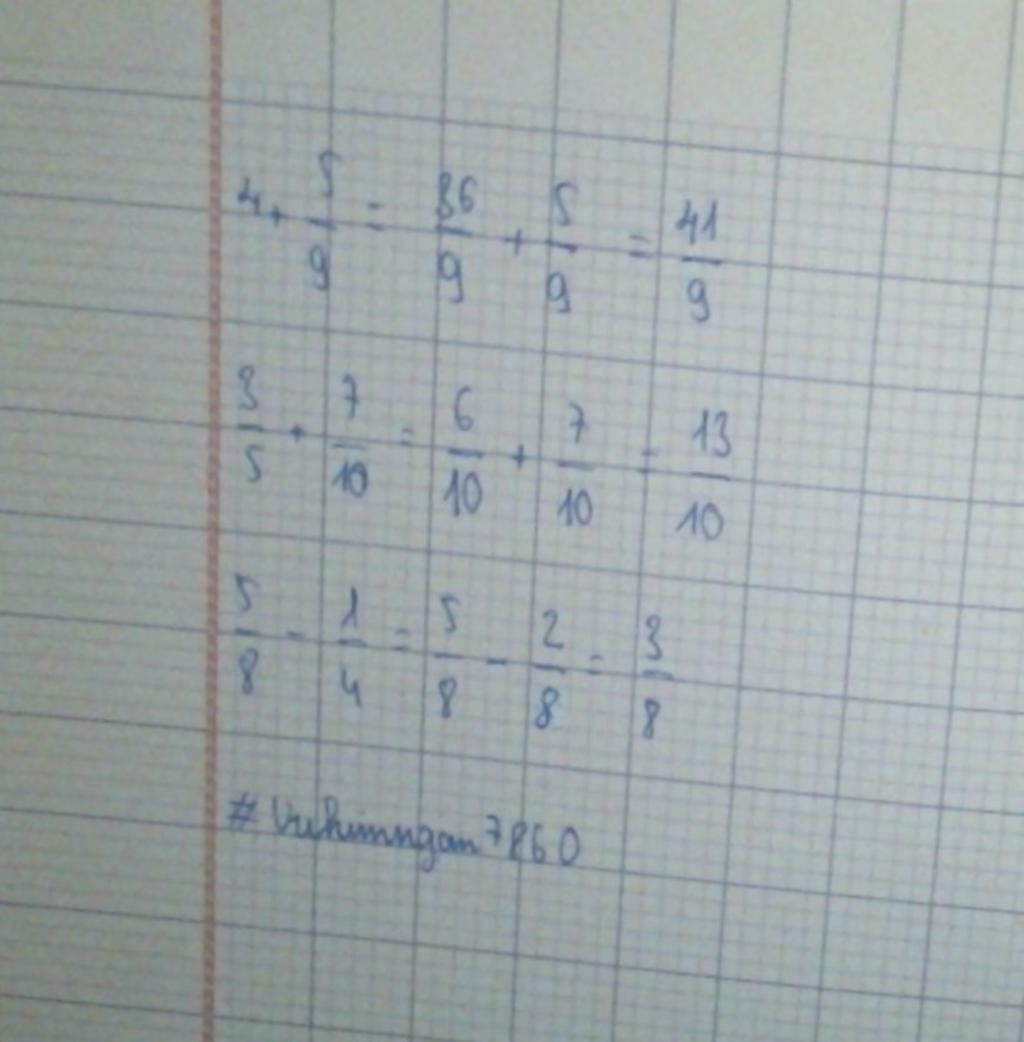 4 + 5/9 = 36/9 + 5/9 = 41/9
3/5 + 7/10 = 6/10 + 7/10 = 13/10
5/8 - 1/4 = 5/8 - 2/8 = 3/8
#Vukimngan7860